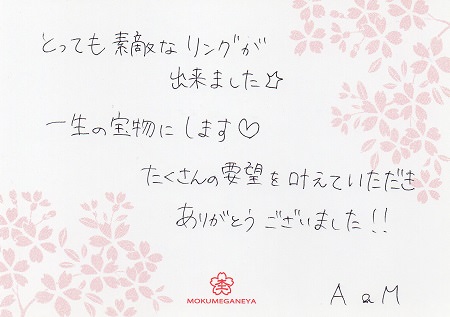 とっても素敵なリングが
出来ました☆
一生の宝物にします♡
たくさんの要望を叶えていただき
ありがとうございました!!
MOKUMEGANEYA
A & M